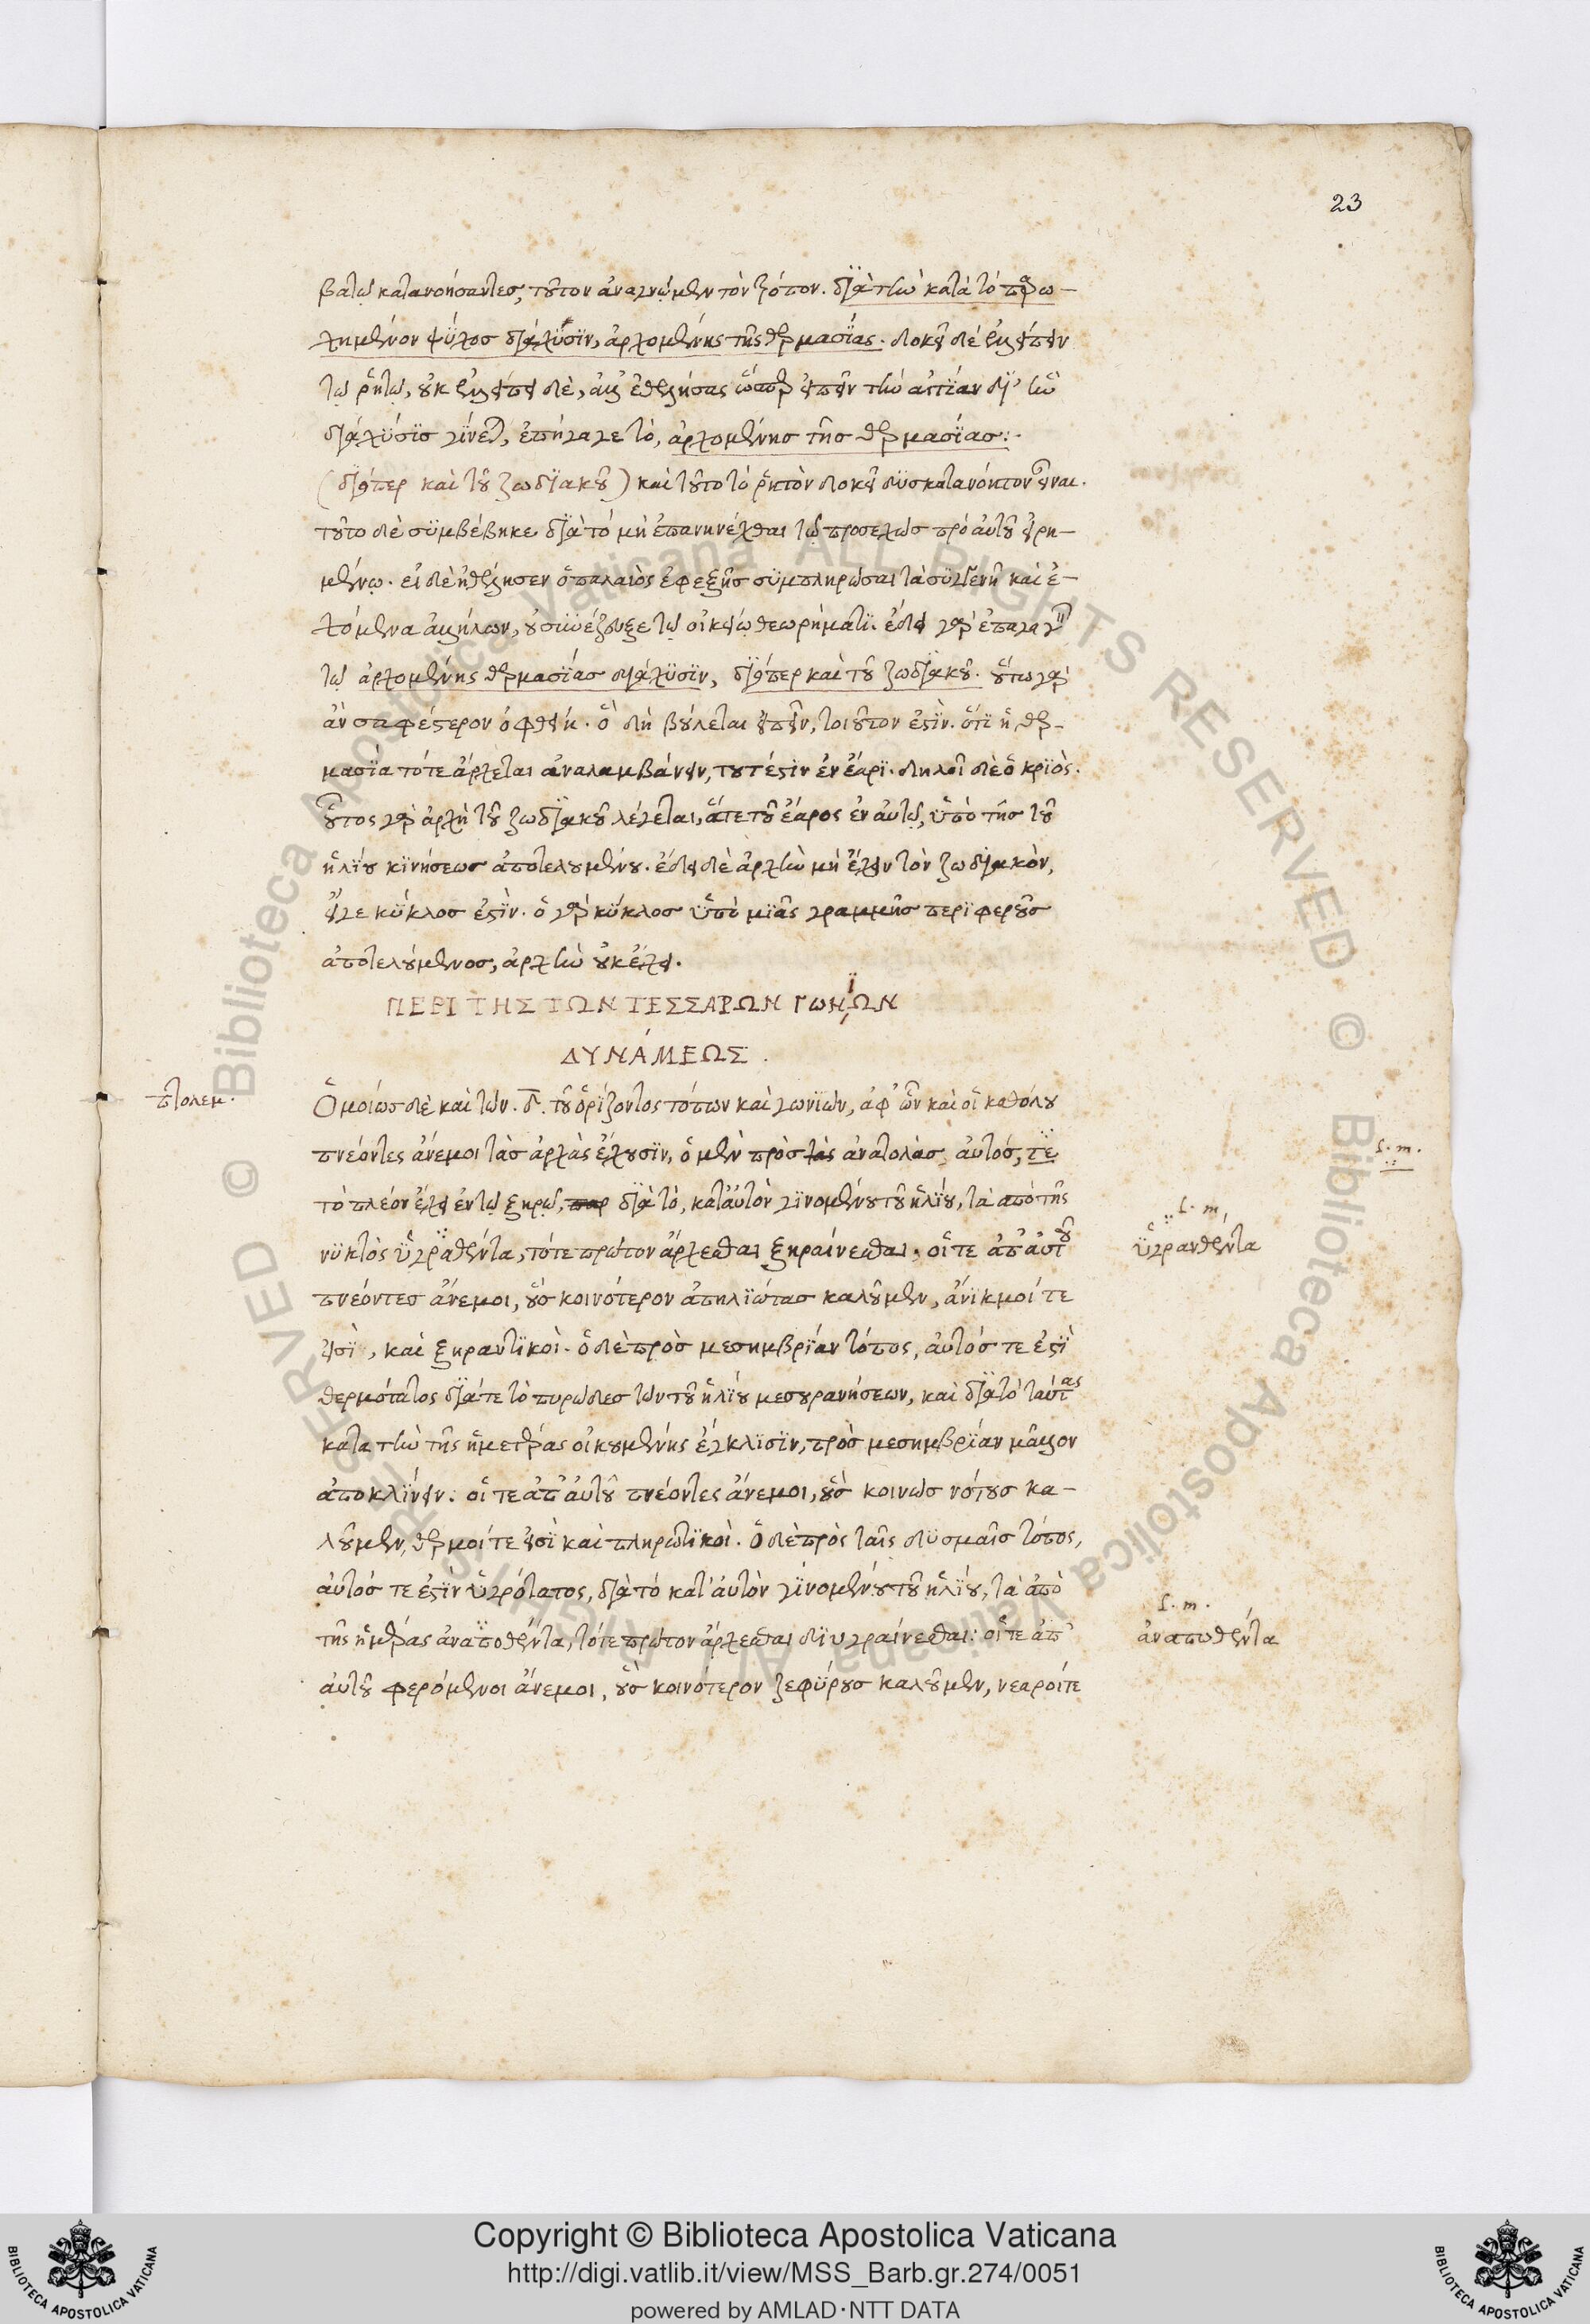 23
βατῷ κατανοήσαντες, τοῦτον ἀναγνῷμεν τὸν τρόπον. διὰ τὴν κατὰ τὸ παρῳ-
χημένον ψῦχος διάλυσιν, ἀρχομένης τῆς θερμασίας. δοκεῖ δὲ ἐλλείπειν
τῷ ῥητῷ, οὐκ ἐλλείπει δὲ, ἀλλ' ἐθελήσας ὥσπερ εἰπεῖν τὴν αἰτίαν δι' ἣν
διάλυσις γίνεται, ἐπήγαγε τὸ, ἀρχομένης τῆς θερμασίας:.
(διόπερ καὶ τοῦ ζωδιακοῦ) καὶ τοῦτο τὸ ῥητὸν δοκεῖ δυσκατανόητον εἶναι.
τοῦτο δὲ συμβέβηκε διὰ τὸ μὴ ἐπανηνέχθαι τῷ προσεχῶς πρὸ αὐτοῦ εἰρη-
μένῳ. εἰ δὲ ἠθέλησεν ὁ παλαιὸς ἐφεξῆς συμπληρῶσαι τὰ συγγενῆ καὶ ἐ-
χόμενα ἀλλήλων, οὐ συνέζευξε τῷ οἰκείῳ θεωρήματι. ἔδει γὰρ ἐπαγαγεῖν
τῷ ἀρχομένης θερμασίας διάλυσιν, διόπερ καὶ τοῦ ζωδιακοῦ. οὕτω γὰρ
ἂν σαφέστερον ὀφθείη. ὃ δὴ βούλεται εἰπεῖν, τοιοῦτον ἐστὶν. ὅτι ἡ θερ-
μασία τότε ἄρχεται ἀναλαμβάνειν, τουτέστιν ἐν ἔαρι. δηλοῖ δὲ ὁ κριὸς.
οὗτος γὰρ ἀρχὴ τοῦ ζωδιακοῦ λέγεται, ἅτε τοῦ ἔαρος ἐν αὐτῷ, ὑπὸ τῆς τοῦ
ἡλίου κινήσεως ἀποτελουμένου. ἔδει δὲ ἀρχὴν μὴ ἔχειν τὸν ζωδιακὸν,
εἴγε κύκλος ἐστὶν. ὁ γὰρ κύκλος ὑπὸ μιᾶς γραμμῆς περιφεροῦς
ἀποτελούμενος, ἀρχὴν οὐκ ἔχει.
ΠΕΡΙ ΤΗΣ ΤΩΝ ΤΕΣΣΑΡΩΝ ΓΩΝΙΩΝ
ΔΥΝΑΜΕΩΣ.
πτολεμ.
Ὁμοίως δὲ καὶ τῶν .δ. τοῦ ὁρίζοντος τόπων καὶ γωνιῶν, ἀφ' ὧν καὶ οἱ καθόλου
πνέοντες ἄνεμοι τὰς ἀρχὰς ἔχουσιν, ὁ μὲν πρὸς τὰς ἀνατολὰς αὐτός, τε
s. m.
τὸ πλέον ἔχει ἐν τῷ ξηρῷ, παρ διὰ τὸ, κατ' αὐτὸν γινομένου τοῦ ἡλίου, τὰ ἀπὸ τῆς
νυκτὸς ὑγραθέντα, τότε πρῶτον ἄρχεσθαι ξηραίνεσθαι. οἵ τε ἀπ' αὐτοῦ
s. m.
ὑγρανθέντα
πνέοντες ἄνεμοι, οὓς κοινότερον ἀπηλιώτας καλοῦμεν, ἄνικμοί τε
εἰσὶ, καὶ ξηραντικοὶ. ὁ δὲ πρὸς μεσημβρίαν τόπος, αὐτός τε ἐστὶ
θερμότατος διά τε τὸ πυρῶδες τῶν τοῦ ἡλίου μεσουρανήσεων, καὶ διὰ τὸ ταύτας
κατὰ τὴν τῆς ἡμετέρας οἰκουμένης ἔγκλισιν, πρὸς μεσημβρίαν μᾶλλον
ἀποκλίνειν. οἵ τε ἀπ' αὐτοῦ πνέοντες ἄνεμοι, οὓς κοινῶς νότους κα-
λοῦμεν, θερμοί τε εἰσὶ καὶ πληρωτικοὶ. ὁ δὲ πρὸς ταῖς δυσμαῖς τόπος,
αὐτός τε ἐστὶν ὑγρότατος, διὰ τὸ κατ' αὐτὸν γινομένου τοῦ ἡλίου, τὰ ἀπὸ
τῆς ἡμέρας ἀναποθέντα, τότε πρῶτον ἄρχεσθαι διυγραίνεσθαι: οἵ τε ἀπ'
s. m.
ἀναπωθέντα
αὐτοῦ φερόμενοι ἄνεμοι, οὓς κοινότερον ζεφύρους καλοῦμεν, νεαροί τε
© Biblioteca Apostolica Vaticana ALL RIGHTS RESERVED
Copyright © Biblioteca Apostolica Vaticana
http://digi.vatlib.it/view/MSS_Barb.gr.274/0051
powered by AMLAD·NTT DATA
BIBLIOTECA APOSTOLICA VATICANA
BIBLIOTECA APOSTOLICA VATICANA